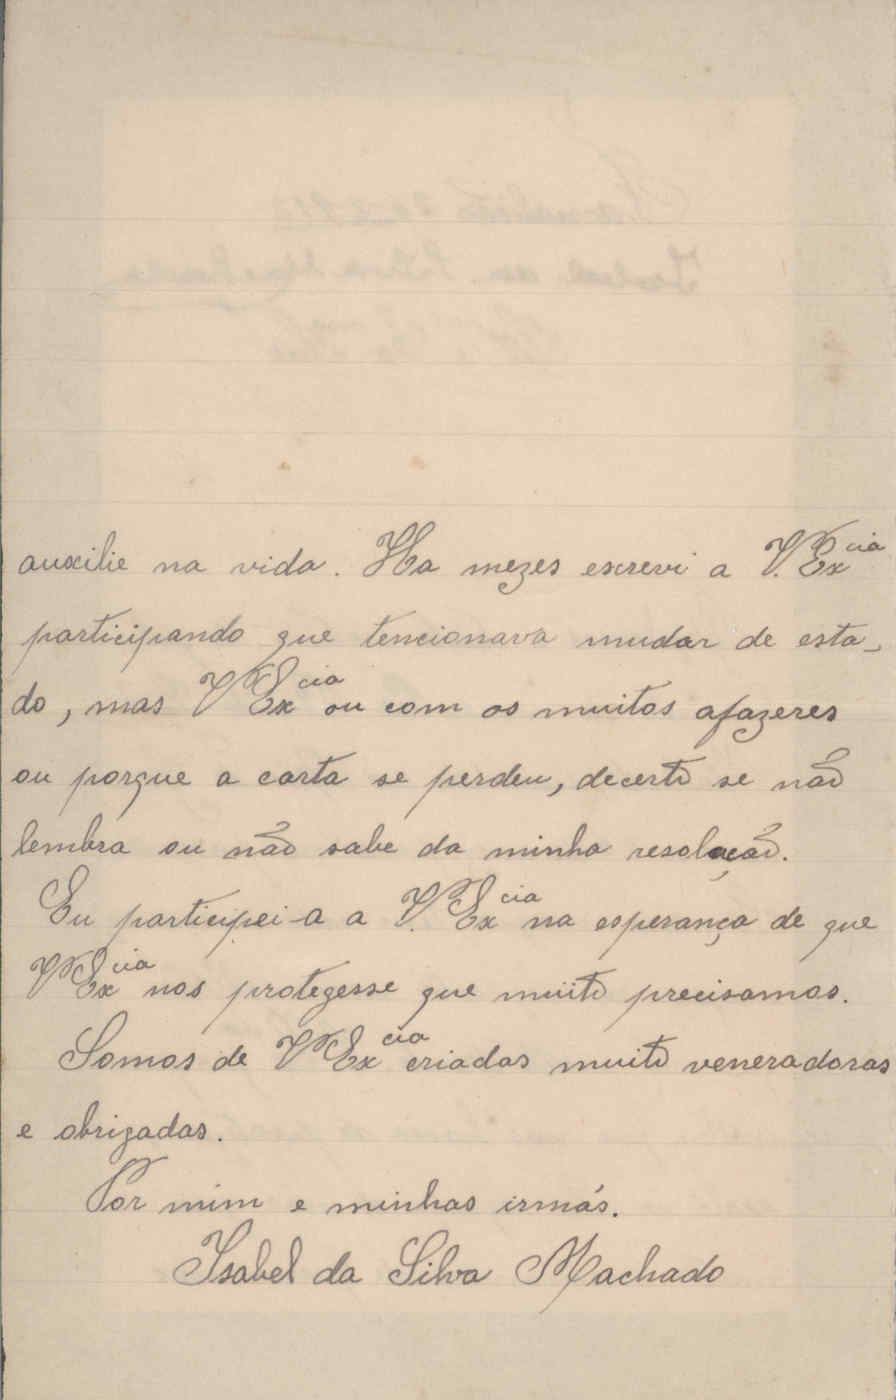 auxilie na vida. Ha mezes escrevi a V. Ex.cia
participando que tencionava mudar de esta-
do, mas V Ex cia ou com os muitos afazeres
ou porque a carta se perdeu, decerto se não
lembra ou não sabe da minha resolução.
Eu participei-a a V. Ex cia na esperança de que
V Ex cia nos protegesse que muito precisamos.
Somos de V Ex cia criadas muito veneradoras
e obrigadas.
Por mim e minhas irmás.
Isabel da Silva Machado